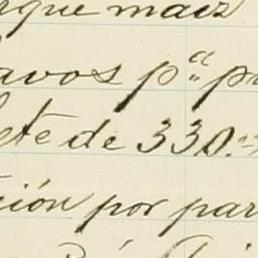 rque maiz
avos pª pr
ete de 330.
ión por par